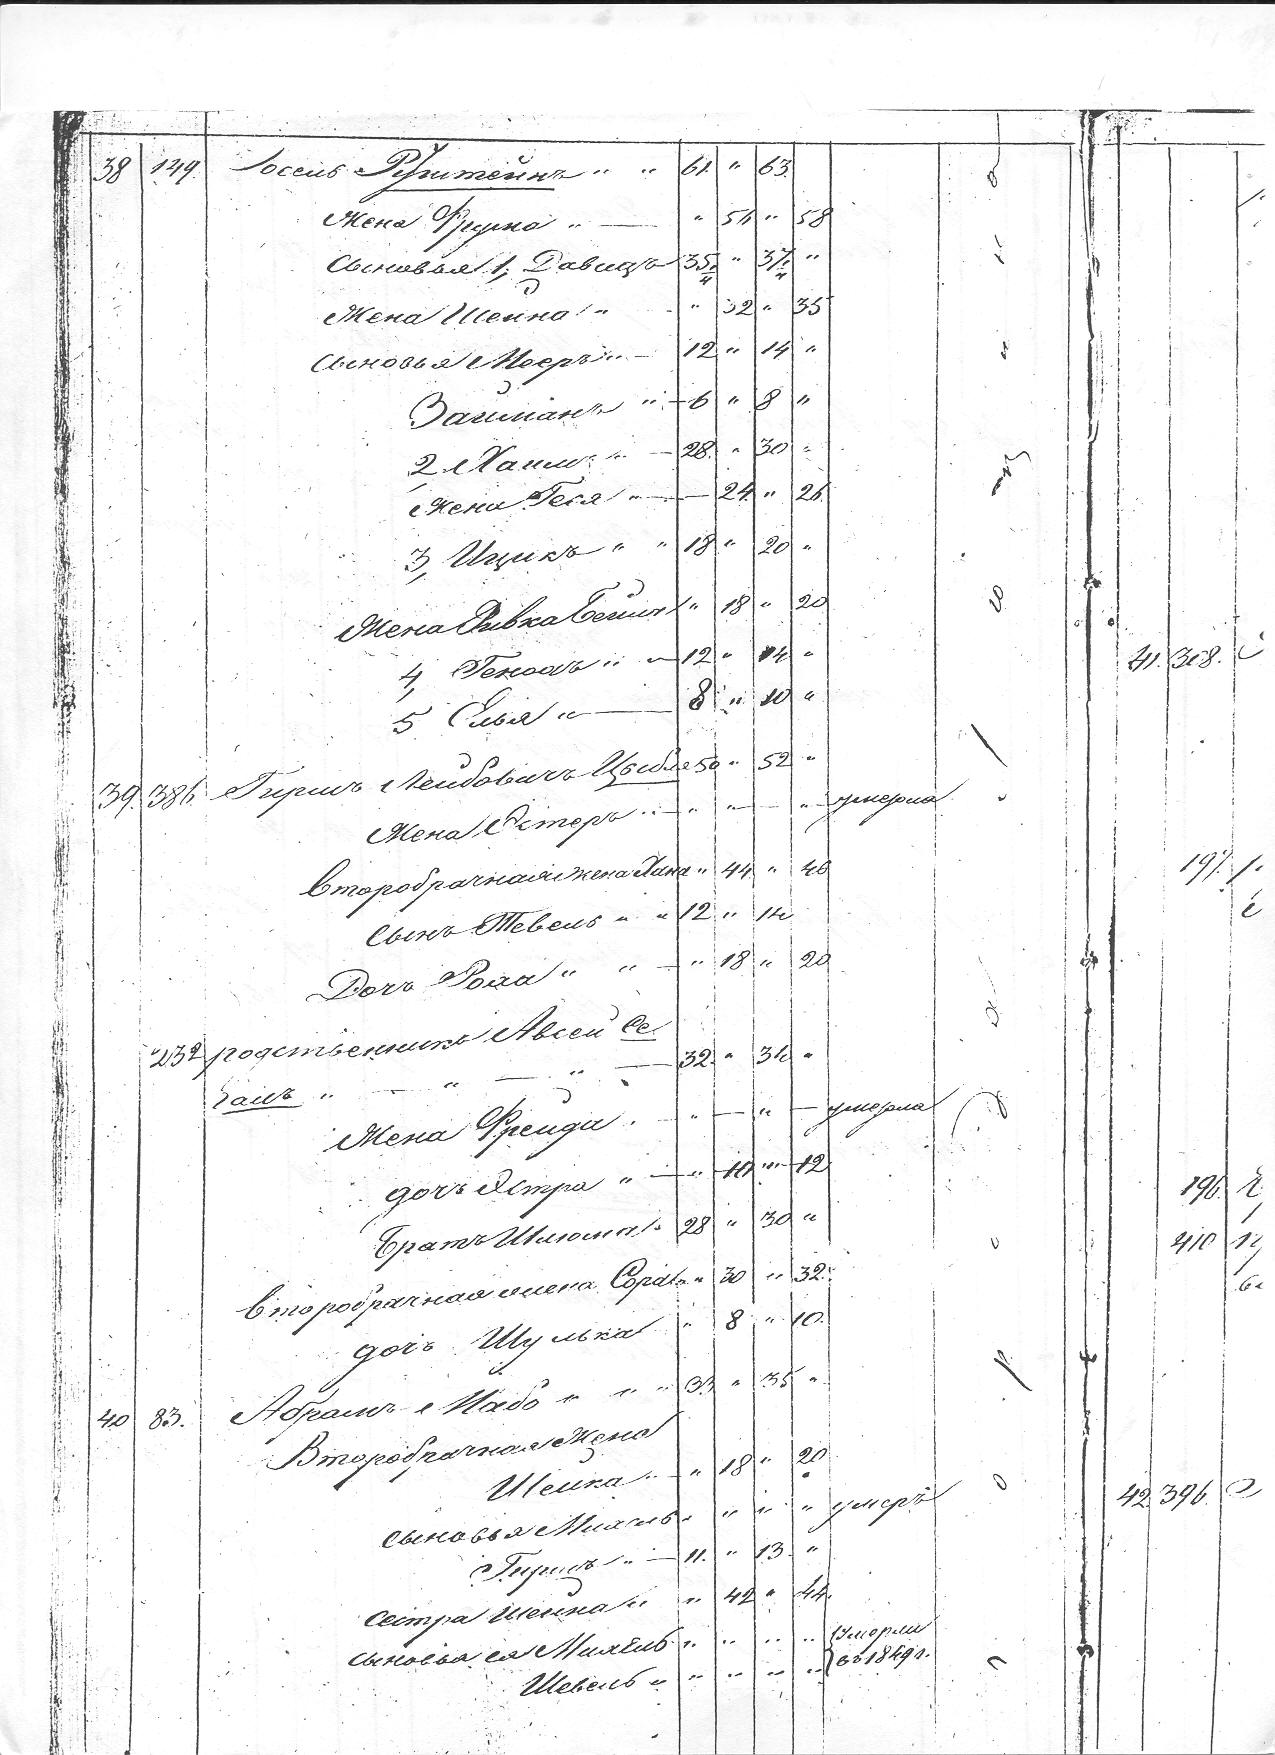 38 149 Иосель Рубштейнъ " " 61. " 63.
Жена Фрума " — " 54 " 58
Сыновья 1, Давидъ 35 1/4 " 37 1/4 "
Жена Шейна " " 32 " 35
Сыновья Мееръ " — 12 " 14 "
Залманъ " — 6 " 8 "
2, Хаимъ " — 28. " 30 "
Жена Геся " — 24 " 26
3, Ицикъ " " 18 " 20 "
Жена Ривка Бейля " 18 " 20
4, Генохъ " — 12 " 14 "
5 Елья " — 8 " 10 "
39. 386 Гиршъ Лейбовичъ Цыбля 50 " 52 "
Жена Эстеръ " — " " — " умерла
Второбрачная жена Хана " 44 " 46
Сынъ Тевель " " 12 " 14
Дочъ Роха " " — " 18 " 20
232 родственникъ Авсей Се
галъ " — " — " — 32. " 34 "
Жена Фрейда. " — " — умерла
дочъ Эстра " — " 10 " 12
Братъ Шлиома " 28 " 30 "
Второбрачная жена Сора " " 30 " 32.
дочъ Шулька " 8 " 10.
40 83. Абрамъ Мабо " " " 33 " 35 "
Второбрачная Жена
Шейка " — " 18 " 20
Сыновья " " " " умеръ
Гиршъ " — 11. " 13. "
Сестра Шейна " " 42 " 44.
сыновья ея " " " " умерли
Шевель " " " " " въ 1849 г.
41. 308.
197.
196.
410
42 396.